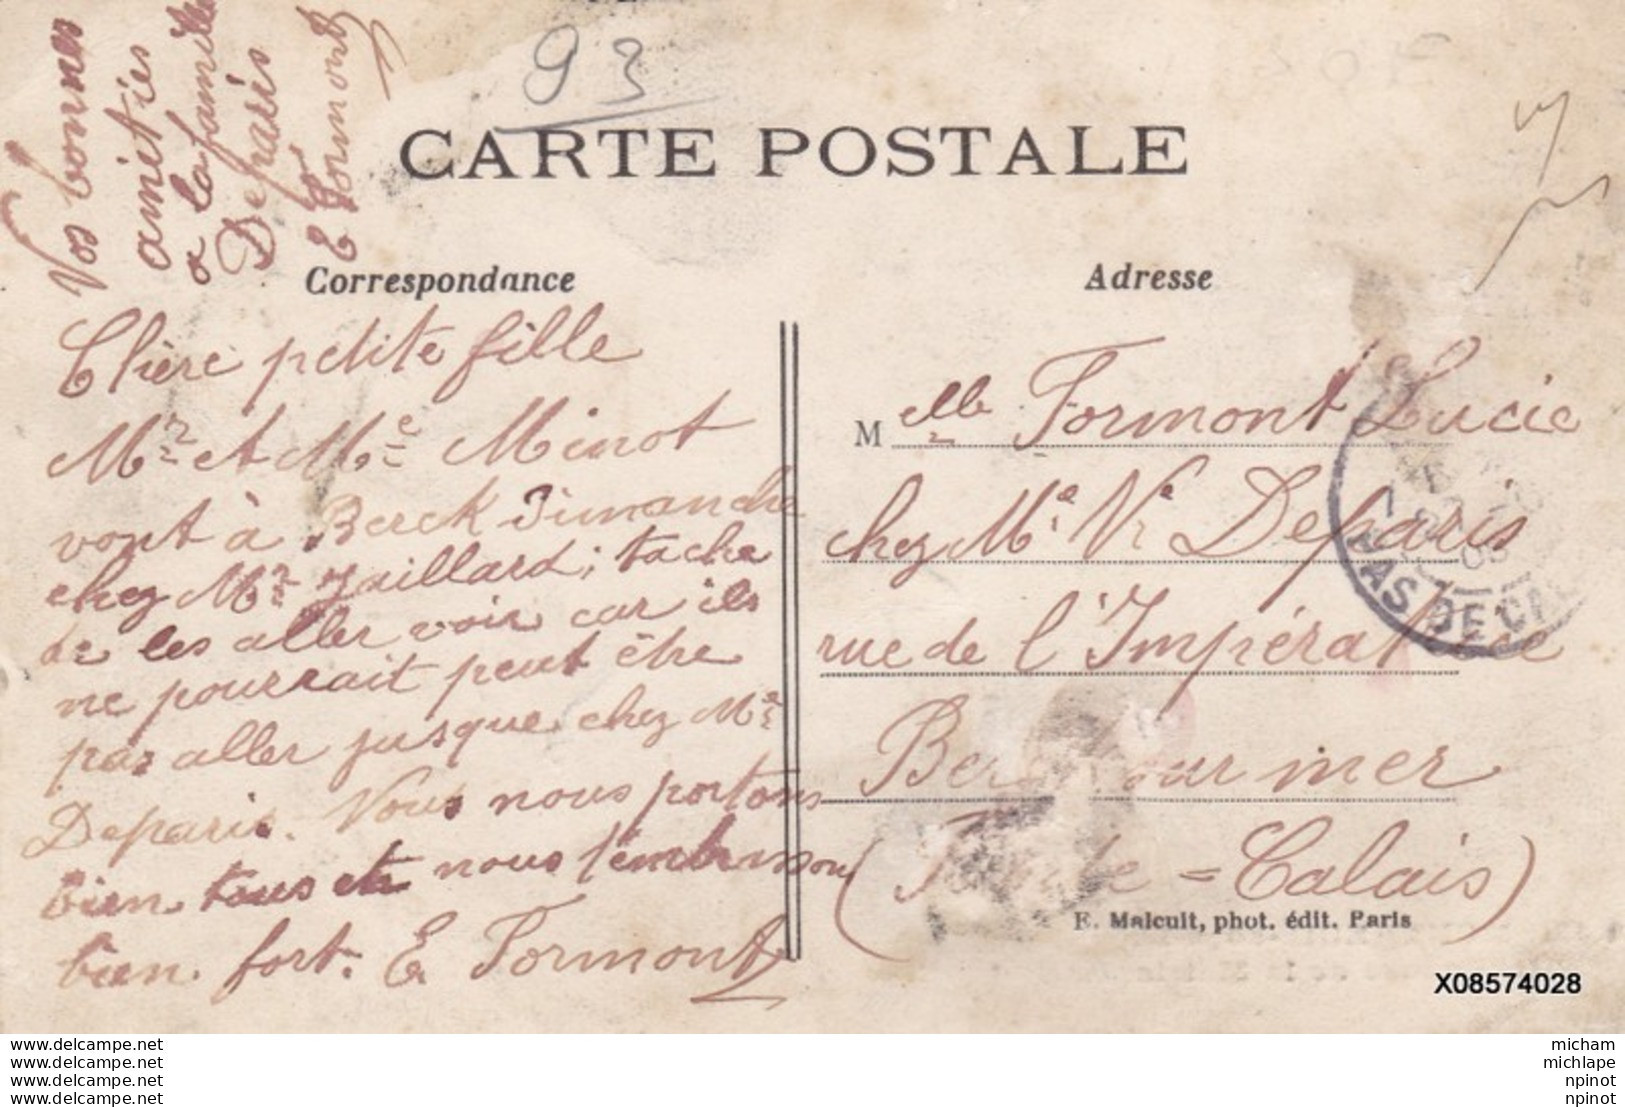 93
CARTE POSTALE
Vos bonnes
amitiés
a la famille
Deparis
E Formont
Correspondance
Adresse
Chère petite fille
Mr et Me Minot
vont à Berck Dimanche
chez Mr Gaillard; tache
de les aller voir car ils
ne pourrait peut être
pas aller jusque chez Me
Deparis. Nous nous portons
bien tous et nous t'embrassons
bien fort. E Formont
Melle Formont Lucie
chez Me Ve Deparis
rue de l'Impératrice
Berck sur mer
(Pas de = Calais)
PAS DE CAL
E. Malcuit, phot. édit. Paris
X08574028
www.delcampe.net
www.delcampe.net
www.delcampe.net
www.delcampe.net
micham
michlape
npinot
npinot